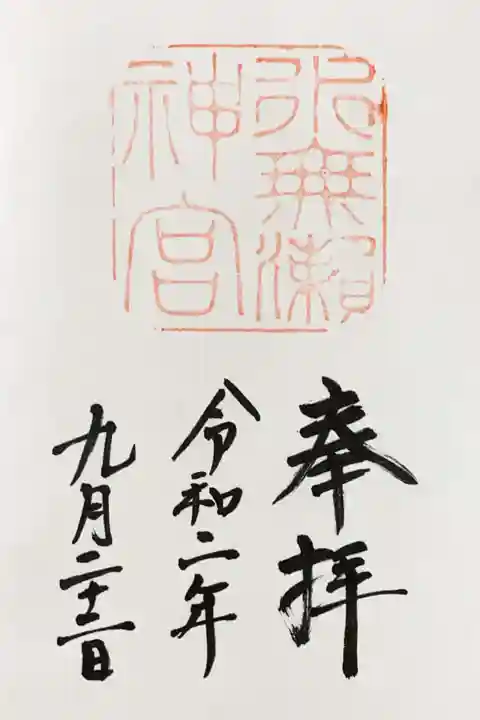 水無瀬
神宮
奉拝
令和二年
九月二十二日